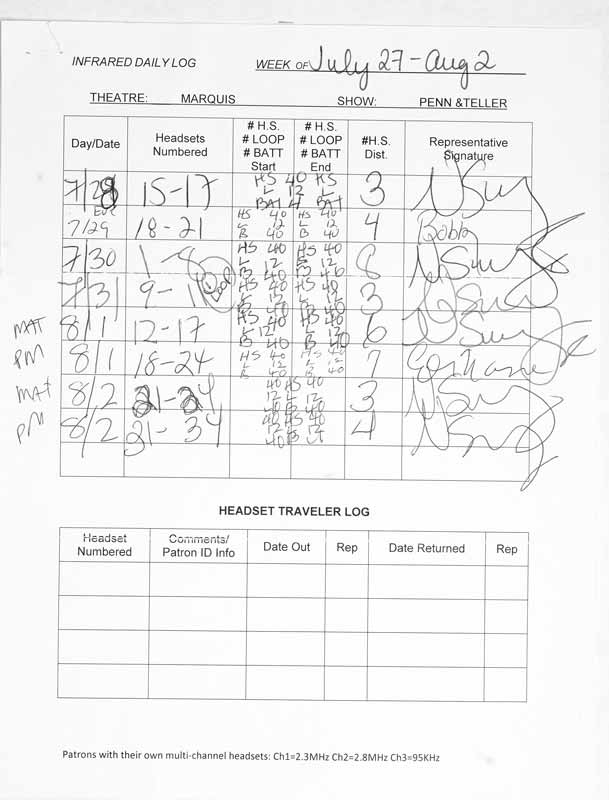 INFRARED DAILY LOG WEEK OF July 27 - Aug 2
THEATRE: MARQUIS SHOW: PENN &TELLER
Day/Date Headsets Numbered # H.S. # LOOP # BATT Start # H.S. # LOOP # BATT End #H.S. Dist. Representative Signature
7/28 15-17 HS 40 HS L 12 L BAT 4 BAT 3
EVE 7/29 18-21 HS 40 L 12 B 40 HS 40 L 12 B 40 4 Bobb
7/30 1-8 HS 40 L 12 B 40 HS 40 12 B 40 8
7/31 9-1 1 Loop HS 40 L 12 B 40 HS 40 L 12 B 40 3
MAT 8/1 12-17 HS 40 L 12 B 40 HS 40 L 12 B 40 6
PM 8/1 18-24 HS 40 L 12 B 40 HS 40 L 12 B 40 7
MAT 8/2 21-24 40 HS 40 12 L 12 40 B 40 3
PM 8/2 31-34 40 HS 40 12 L 12 40 B 4
HEADSET TRAVELER LOG
Headset Numbered Comments/ Patron ID Info Date Out Rep Date Returned Rep
Patrons with their own multi-channel headsets: Ch1=2.3MHz Ch2=2.8MHz Ch3=95KHz